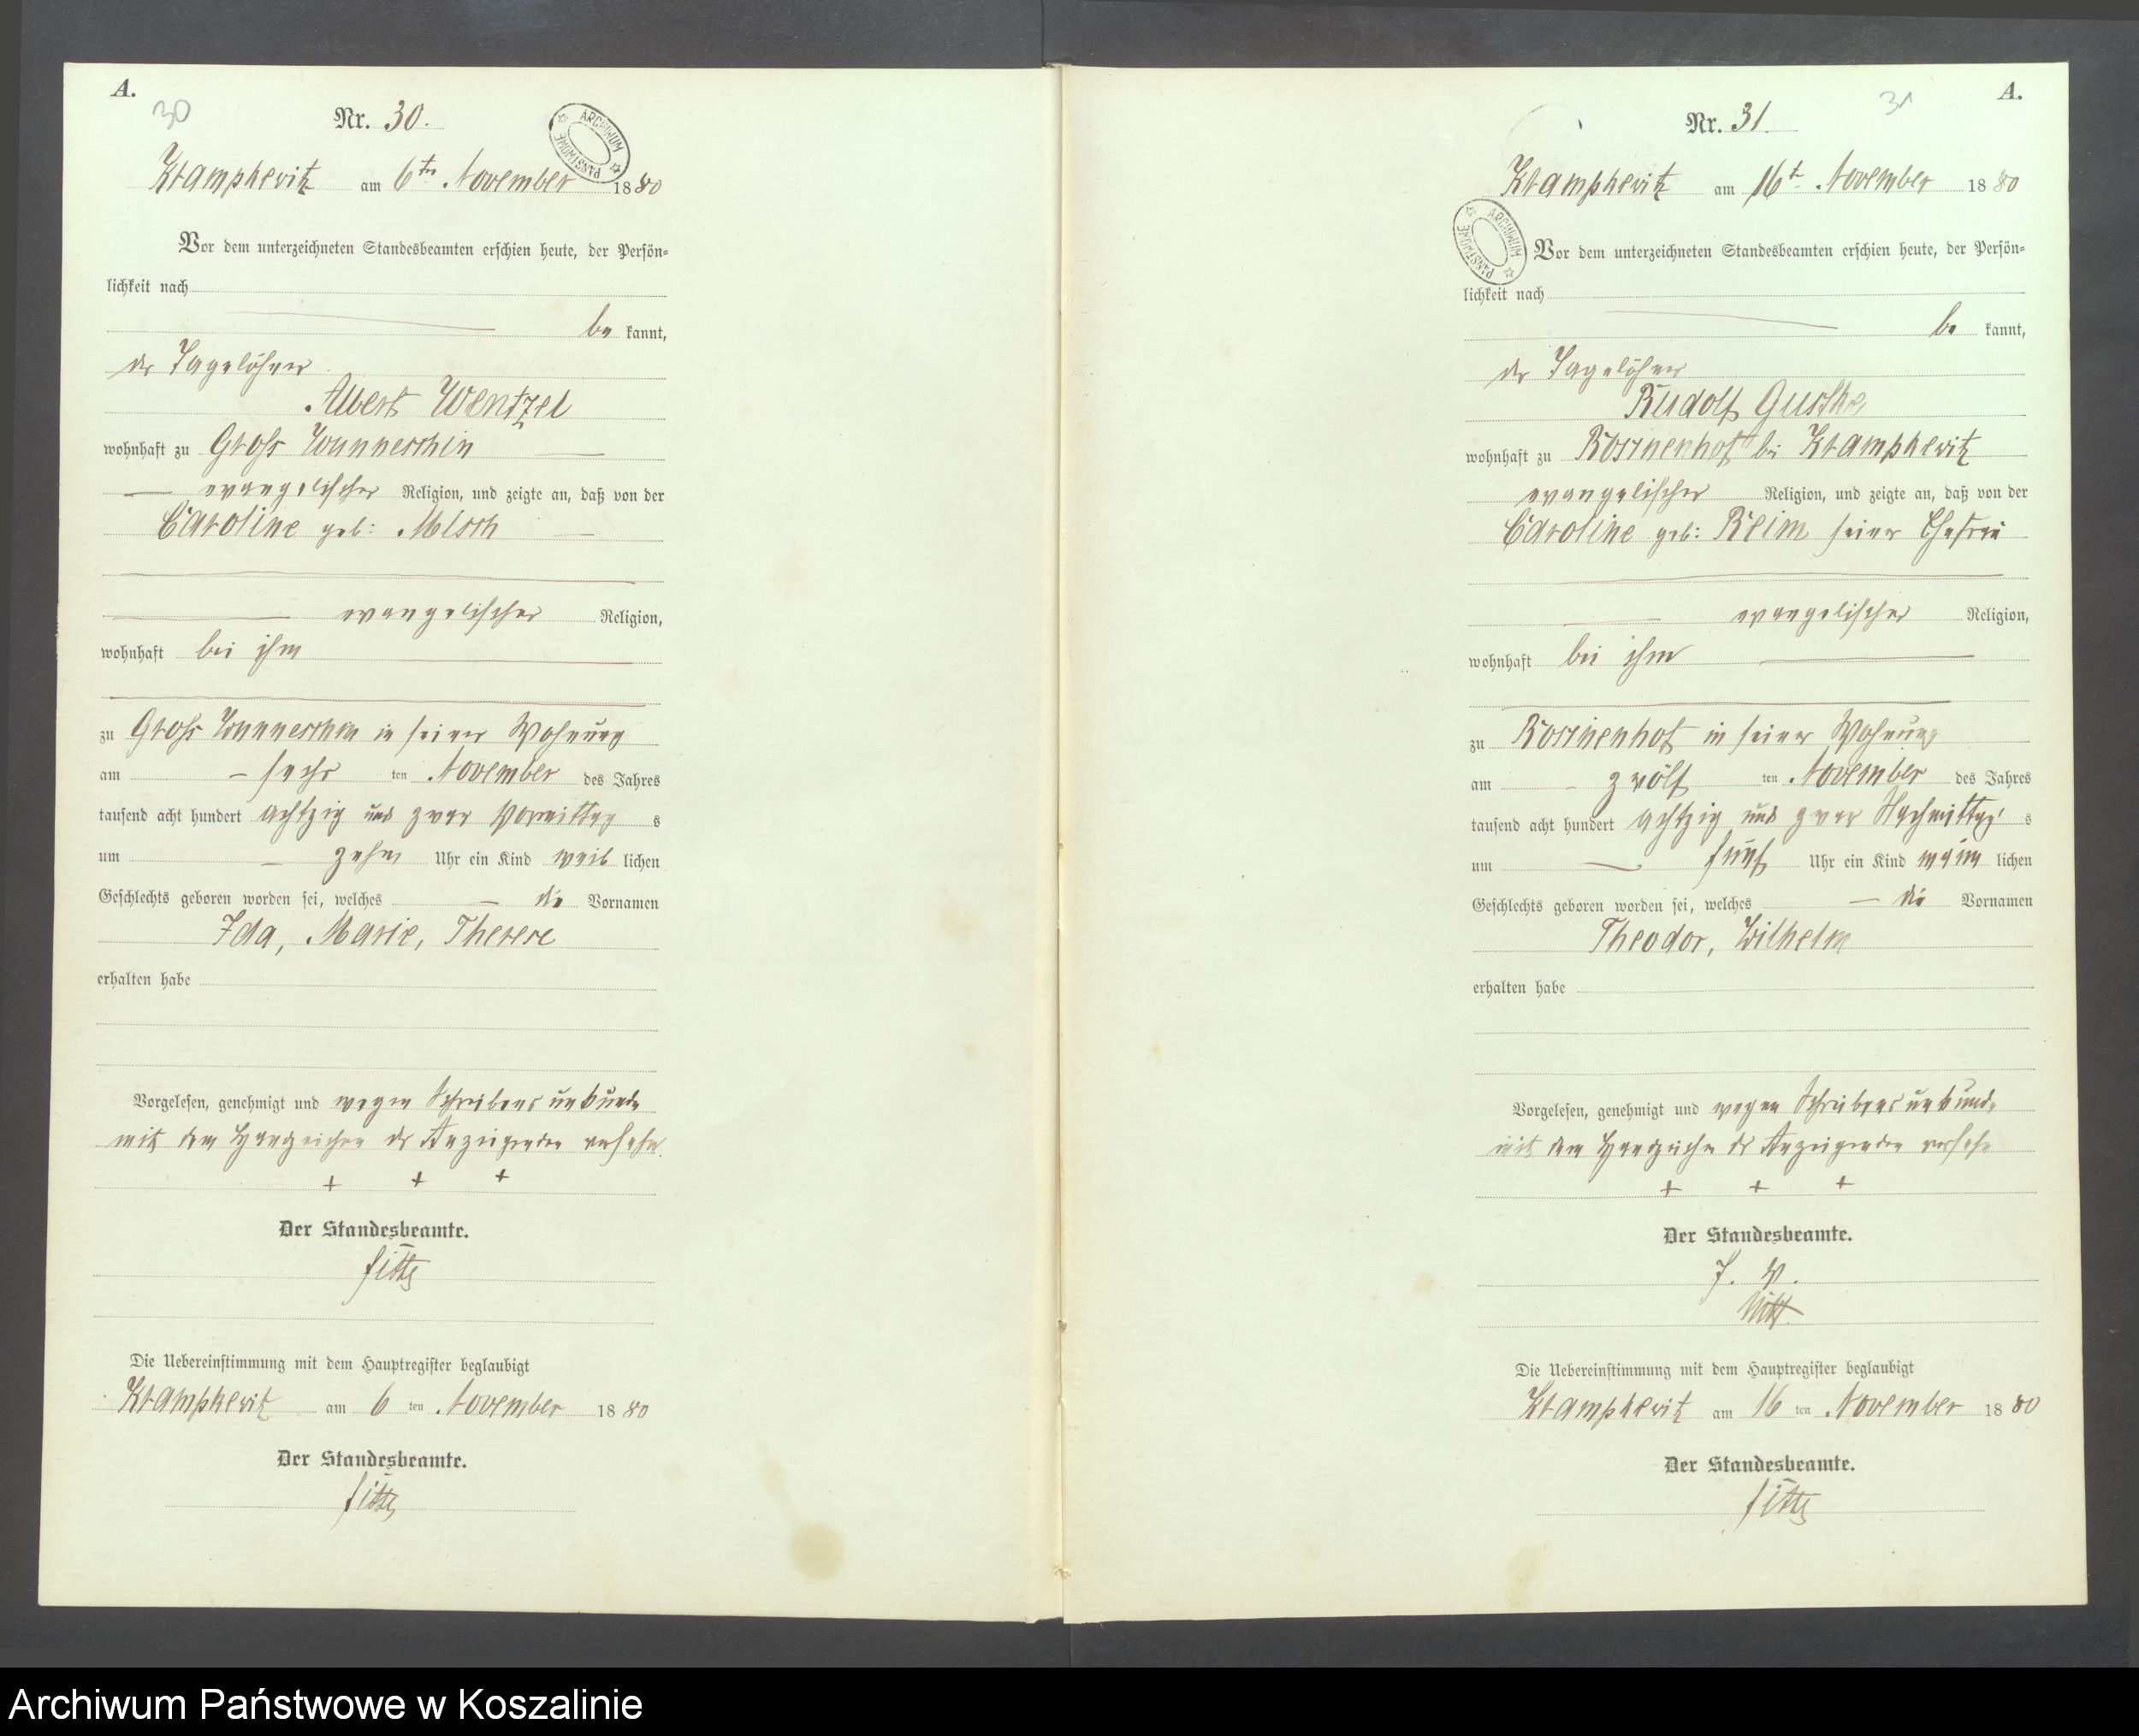 A.
30
Nr. 30.
ARCHIWUM PAŃSTWOWE
Krampkewitz am 6ten November 1880
Vor dem unterzeichneten Standesbeamten erschien heute, der Persön-
lichkeit nach
be kannt,
der Tagelöhner
Albert Wentzel
wohnhaft zu Groß Wunneschin
evangelischer Religion, und zeigte an, daß von der
Caroline geb: Misch
evangelischer Religion,
wohnhaft bei ihm
zu Groß Wunneschin in seiner Wohnung
am sechs ten November des Jahres
tausend acht hundert achtzig und zwar Vormittag s
um zehn Uhr ein Kind weib lichen
Geschlechts geboren worden sei, welches die Vornamen
Ida, Marie, Therese
erhalten habe
Vorgelesen, genehmigt und wegen Schreibensunkunde
mit dem Handzeichen des Anzeigenden versehen.
+ + +
Der Standesbeamte.
Die Uebereinstimmung mit dem Hauptregister beglaubigt
Krampkewitz am 6 ten November 1880
Der Standesbeamte.
A.
31
Nr. 31.
Krampkewitz am 16t November 1880
ARCHIWUM PAŃSTWOWE
Vor dem unterzeichneten Standesbeamten erschien heute, der Persön-
lichkeit nach
be kannt,
der Tagelöhner
Rudolf Guske
wohnhaft zu Rosinenhof bei Krampkewitz
evangelischer Religion, und zeigte an, daß von der
Caroline geb: Reim seiner Ehefrau
evangelischer Religion,
wohnhaft bei ihm
zu Rosinenhof in seiner Wohnung
am zwölf ten November des Jahres
tausend acht hundert achtzig und zwar Nachmittag s
um fünf Uhr ein Kind männ lichen
Geschlechts geboren worden sei, welches die Vornamen
Theodor, Wilhelm
erhalten habe
Vorgelesen, genehmigt und wegen Schreibensunkunde
mit dem Handzeichen des Anzeigenden versehen
+ + +
Der Standesbeamte.
J. V.
Die Uebereinstimmung mit dem Hauptregister beglaubigt
Krampkewitz am 16 ten November 1880
Der Standesbeamte.
Archiwum Państwowe w Koszalinie